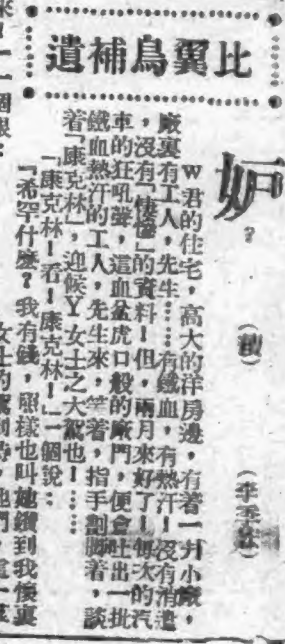 比翼鳥補遺
妒?
(李玉林)
W君的住宅，高大的洋房邊，有着一升小廠，
廠裏有工人，先生……有鐵血，有熱汗！沒有消遣
，沒有「悽慘」的資料！但，兩月來好了！每次的汽
車的狂吼聲，這血盆虎口般的廠門，便會吐出一批
鐵血熱汗的工人，先生來，笑着，指手劃脚着，談
着「康克林」，迎候Y女士之大駕也！……
「康克林！看！康克林！」一個說：
「希罕什麽？我有錢，照樣也叫她鑽到我懷裏
來！」一個恨：